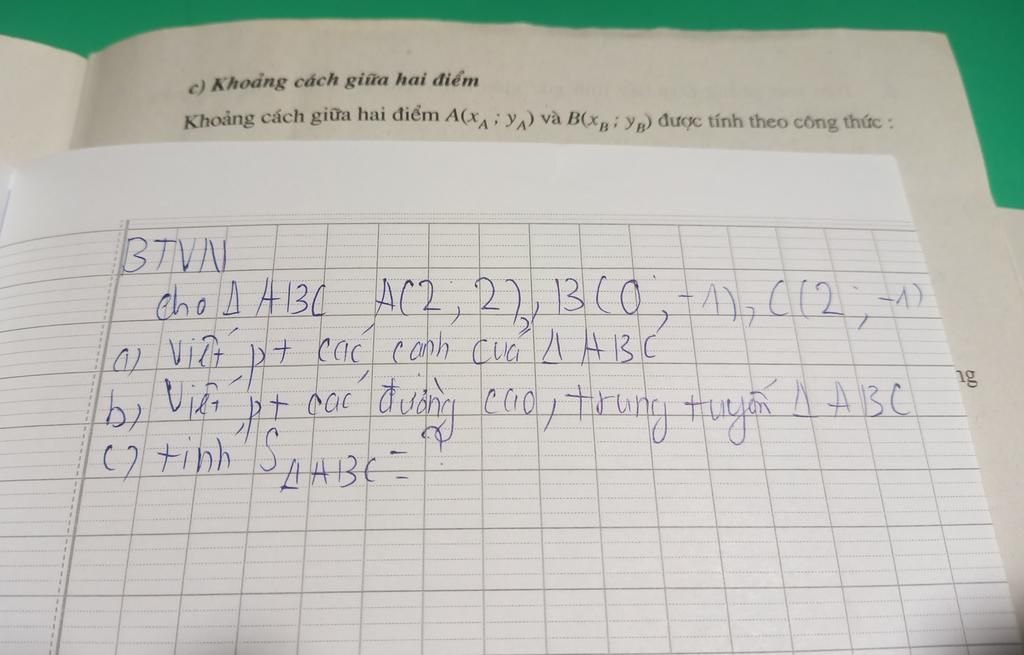 c) Khoảng cách giữa hai điểm
Khoảng cách giữa hai điểm A(x_A ; y_A) và B(x_B ; y_B) được tính theo công thức :
BTVN
cho Δ ABC A(2; 2), B(0; -1), C(2; -1)
a) Viết pt các cạnh của Δ ABC
b) Viết pt các đường cao, trung tuyến Δ ABC
c) tính S_ΔABC = ?